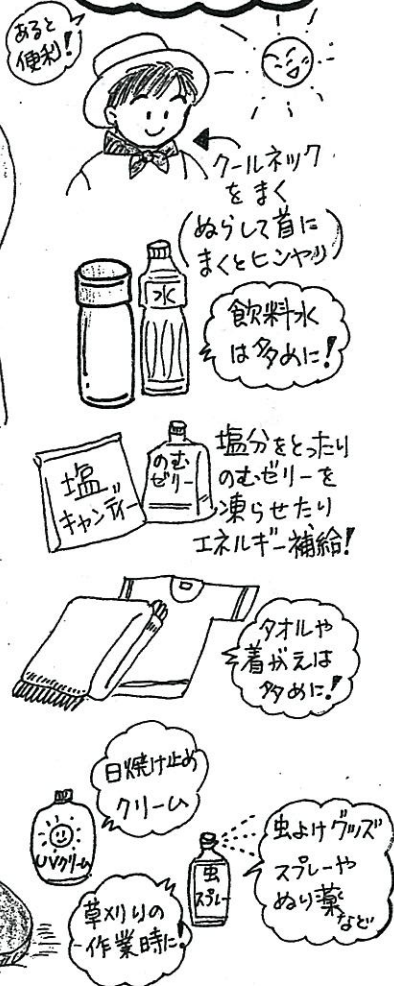 あると
便利!
クールネック
をまく
(ぬらして首に
まくとヒンヤリ)
水
飲料水
は多めに!
塩
キャンディー
のむ
ゼリー
塩分をとったり
のむゼリーを
凍らせたり
エネルギー補給!
タオルや
着がえは
多めに!
日焼け止め
クリーム
UVクリーム
虫
スプレー
虫よけグッズ
スプレーや
ぬり薬
など
草刈りの
作業時に!